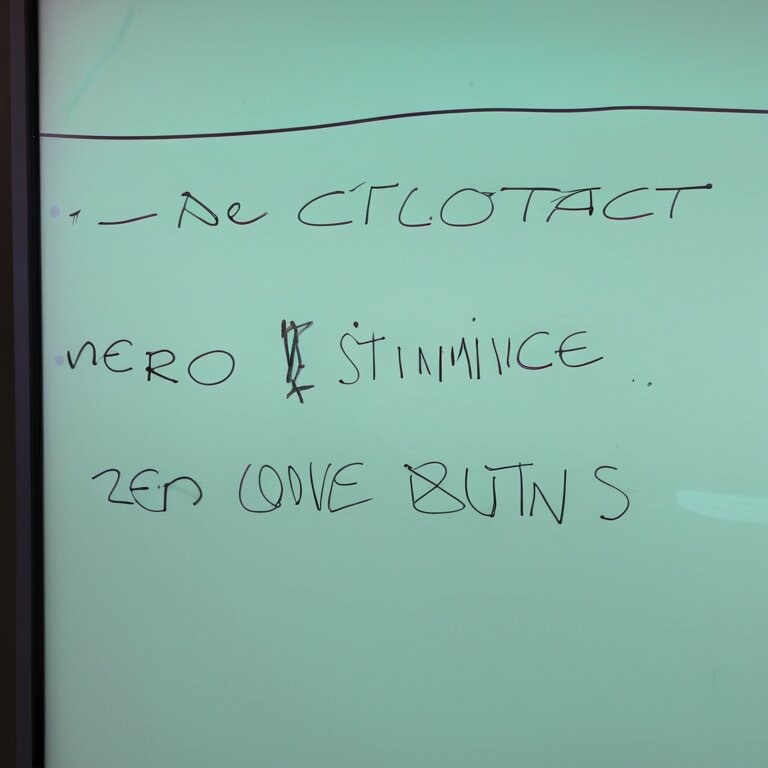 - De CTLOTACT
NERO STINMINCE ..
ZEN LODVE BUTN S